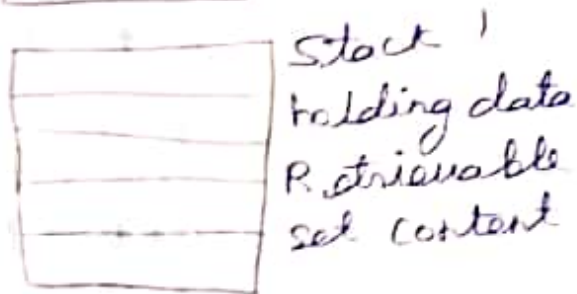 Stack 1
holding data
Retrievable
set content